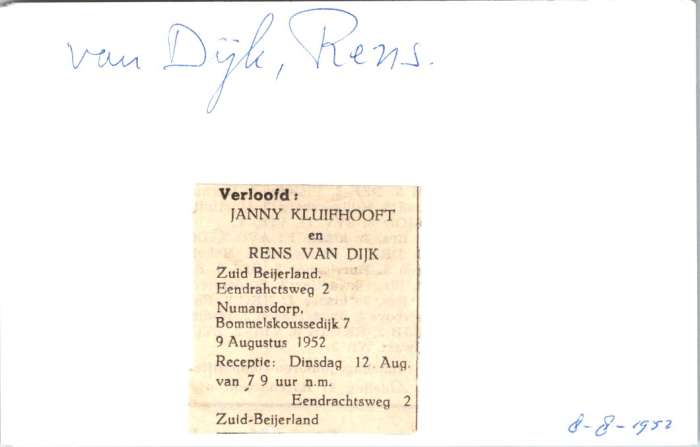 van Dijk, Rens.
Verloofd:
JANNY KLUIFHOOFT
en
RENS VAN DIJK
Zuid Beijerland.
Eendrahctsweg 2
Numansdorp,
Bommelskoussedijk 7
9 Augustus 1952
Receptie: Dinsdag 12 Aug.
van 7 9 uur n.m.
Eendrachtsweg 2
Zuid-Beijerland
8-8-1952